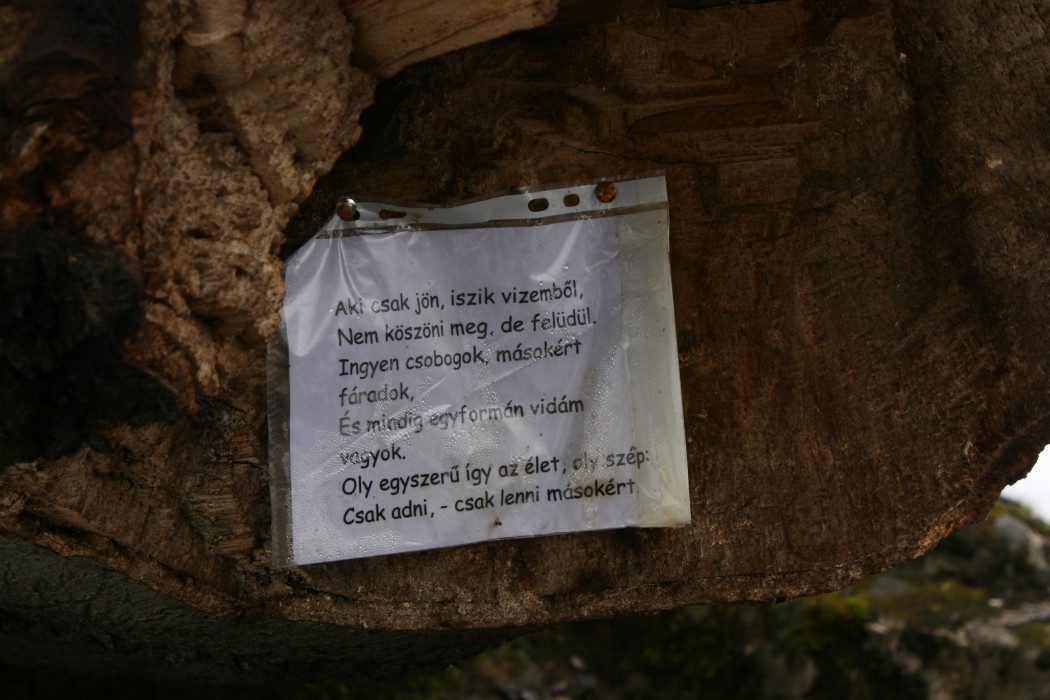 Aki csak jön, iszik vizemből,
Nem köszöni meg, de felüdül.
Ingyen csobogok, másokért
fáradok,
És mindig egyformán vidám
vagyok.
Oly egyszerű így az élet, oly szép:
Csak adni, - csak lenni másokért.